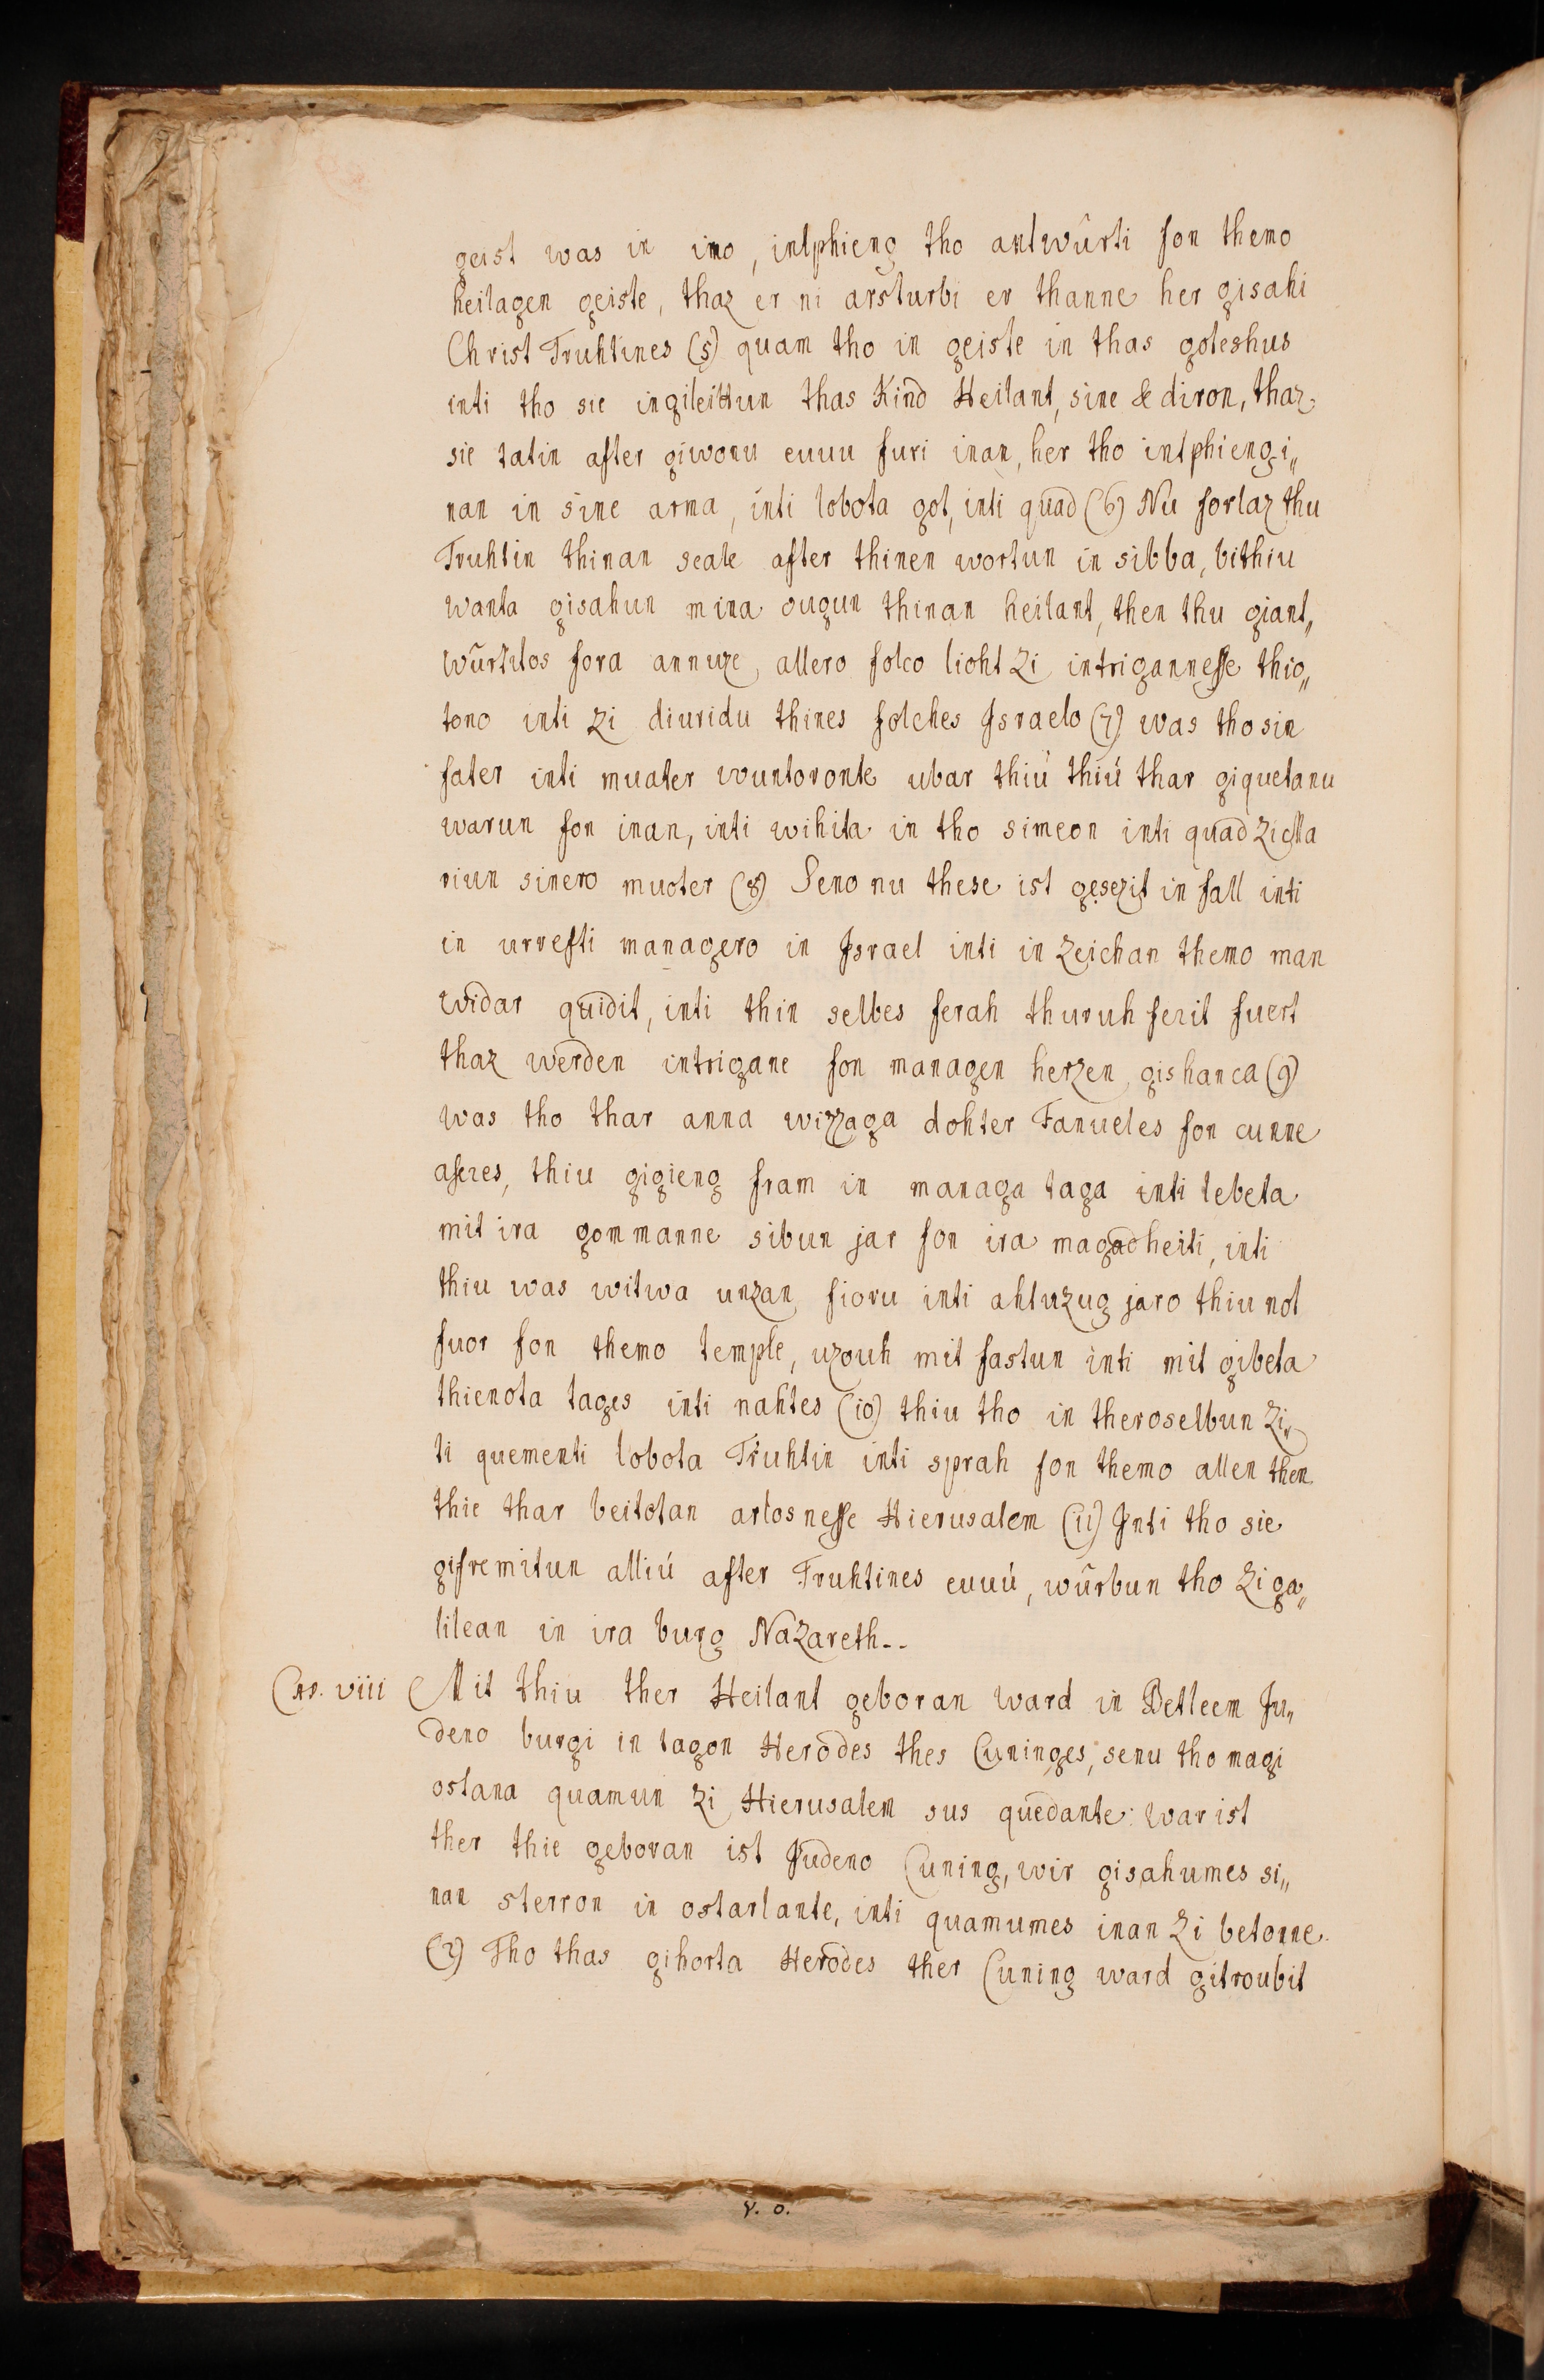 geist was in imo, intphieng tho antwûrti fon themo
heilagen geiste, thaz er ni arsturbi er thanne her gisahi
Christ Truhtines (5) quam tho in geiste in thas goteshus
inti tho sie ingileittun thas Kind Heilant, sine & diron, thaz
sie tatin after giwonu euuu furi inan, her tho intphiengi„
nan in sine arma, inti lobota got, inti quad (6) Nu forlaz thu
Truhtin thinan scale after thinen wortun in sibba, bithiu
wanta gisahun mina ougun thinan heilant, then thu giant„
wûrtitos fora annuze, allero folco lioht zi intrigannesse thio„
tono inti zi diuridu thines folches Israelo (7) was tho sin
fater inti muater wuntoronte ubar thiú thiú thar giquetanu
warun fon inan, inti wihita in tho simeon inti quad zi Ma
riun sinero muoter (8) Seno nu these ist gesezit in fall inti
in urresti managero in Israel inti in zeichan themo man
widar quidit, inti thin selbes ferah thuruh ferit suert
thaz werden intrigane fon managen herzen gishanca (9)
was tho thar anna wizzaga dohter Fanueles fon cunne
aseres, thiu gigieng fram in managa taga inti lebeta
mit ira gommanne sibun jar fon ira magadheiti, inti
thiu was witwa unzan fioru inti ahtuzug jaro thiu not
fuor fon themo temple, uzouh mit fastun inti mit gibeta
thienota tages inti nahtes (10) thiu tho in theroselbun zi„
ti quementi lobota Truhtin inti sprah fon themo allen then
thie thar beitotan arlosnesse Hierusalem (11) Inti tho sie
gifremitun alliú after Truhtines euuú, wûrbun tho zi ga„
lilean in ira burg Nazareth--
Cap. viii Mit thiu ther Heilant geboran ward in Betleem Ju„
deno burgi in tagon Herodes thes Cuninges, senu tho magi
ostana quamun zi Hierusalem sus quedante: war ist
ther thie geboran ist Judeno Cuning, wir gisahumes si„
nan sterron in ostarlante, inti quamumes inan zi betonne.
(2) Tho thas gihorta Herodes ther Cuning ward gitroubit